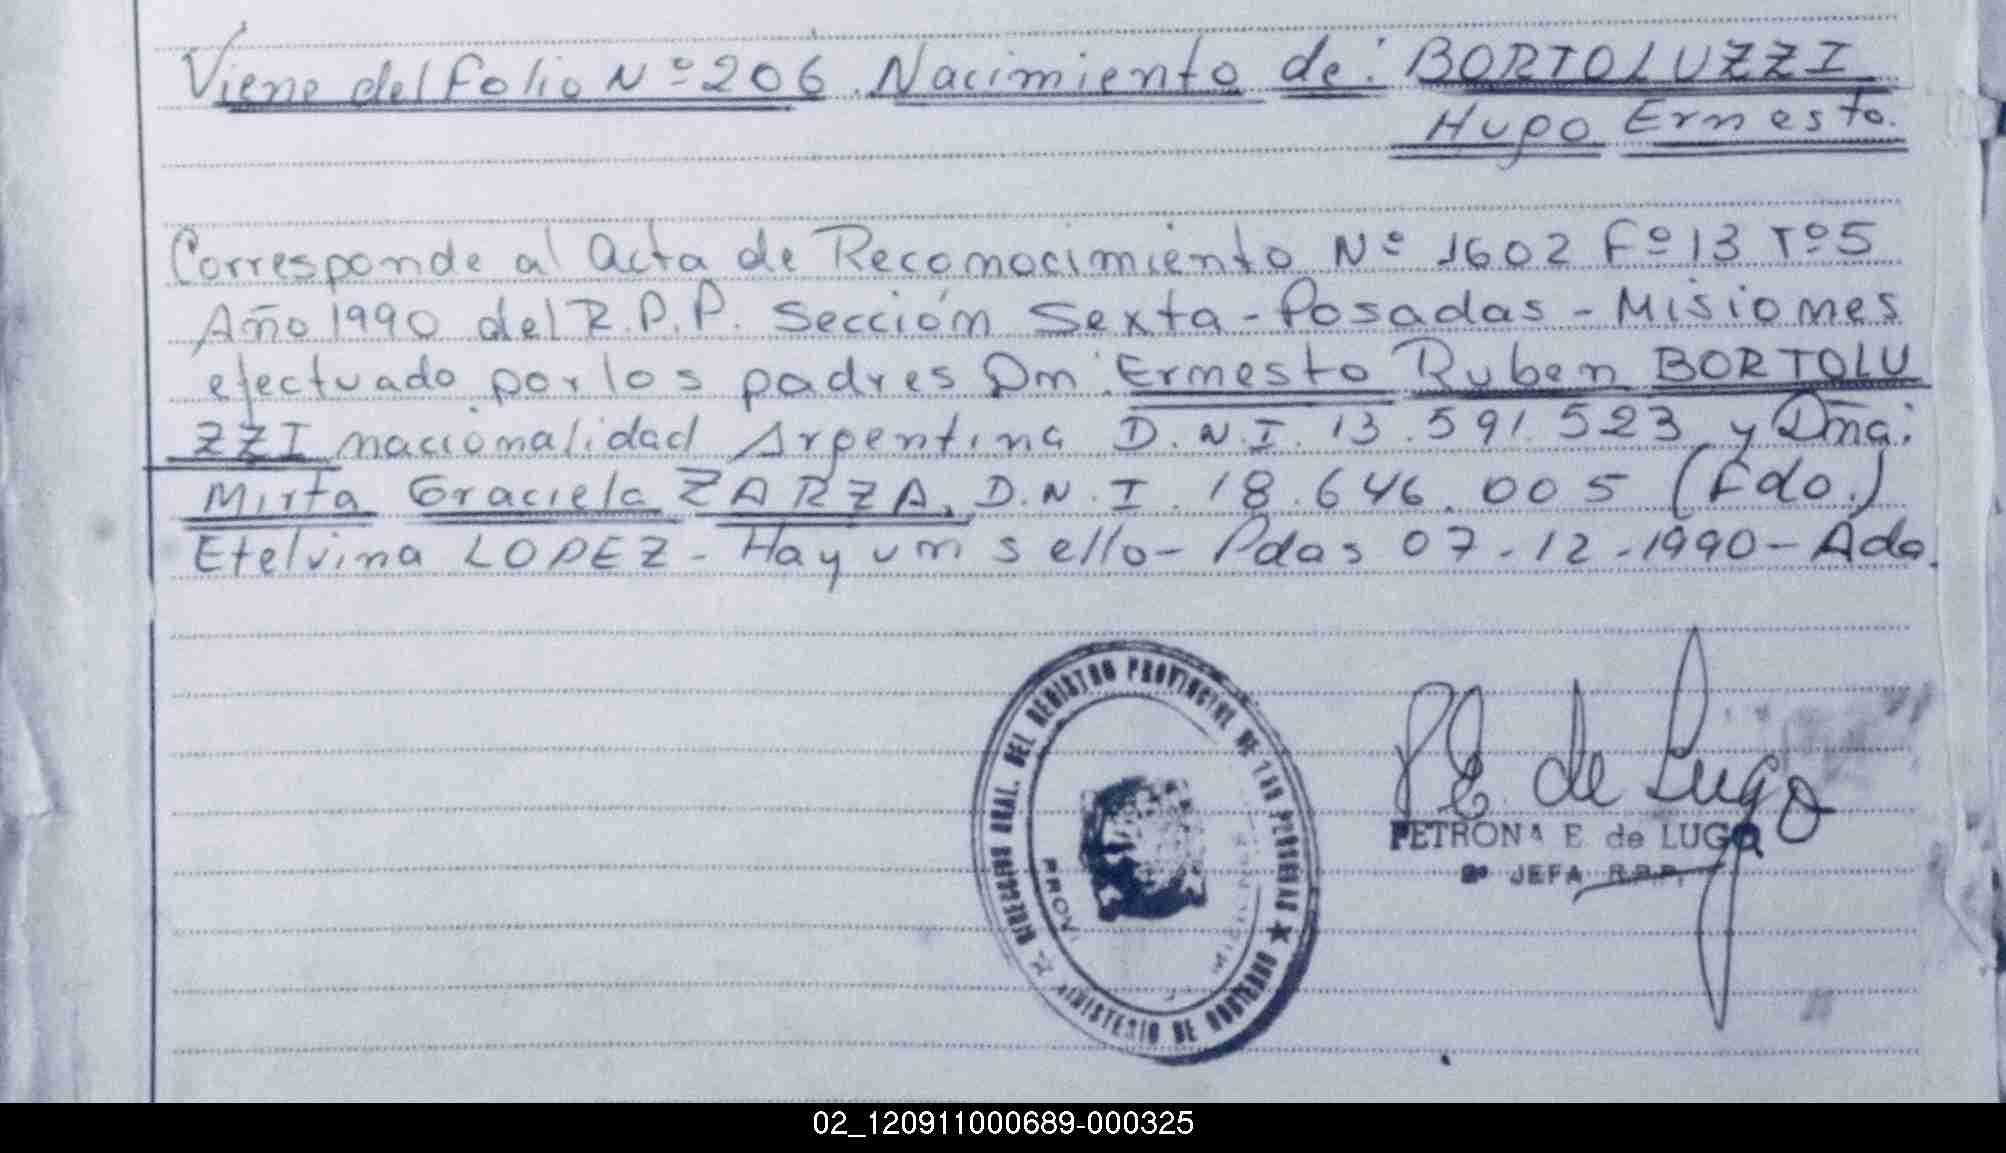 Viene del Folio Nº 206. Nacimiento de: BORTOLUZZI
Hugo Ernesto.
Corresponde al Acta de Reconocimiento Nº 1602 Fº 13 Tº 5
Año 1990 del R.P.P. Sección Sexta - Posadas - Misiones
efectuado por los padres Dn. Ernesto Ruben BORTOLU
ZZI nacionalidad Argentina D.N.I. 13.591.523 y Dña:
Mirta Graciela ZARZA, D.N.I. 18.646.005 (Fdo.)
Etelvina LOPEZ - Hay un sello - Pdas 07-12-1990 - Ado.
DIRECCION GRAL. DEL REGISTRO PROVINCIAL DE LAS PERSONAS ★
MINISTERIO DE GOBIERNO
PROV.
MISIONES
P E de Lugo
PETRONA E. de LUGO
2ª JEFA R.P.P.
02_120911000689-000325